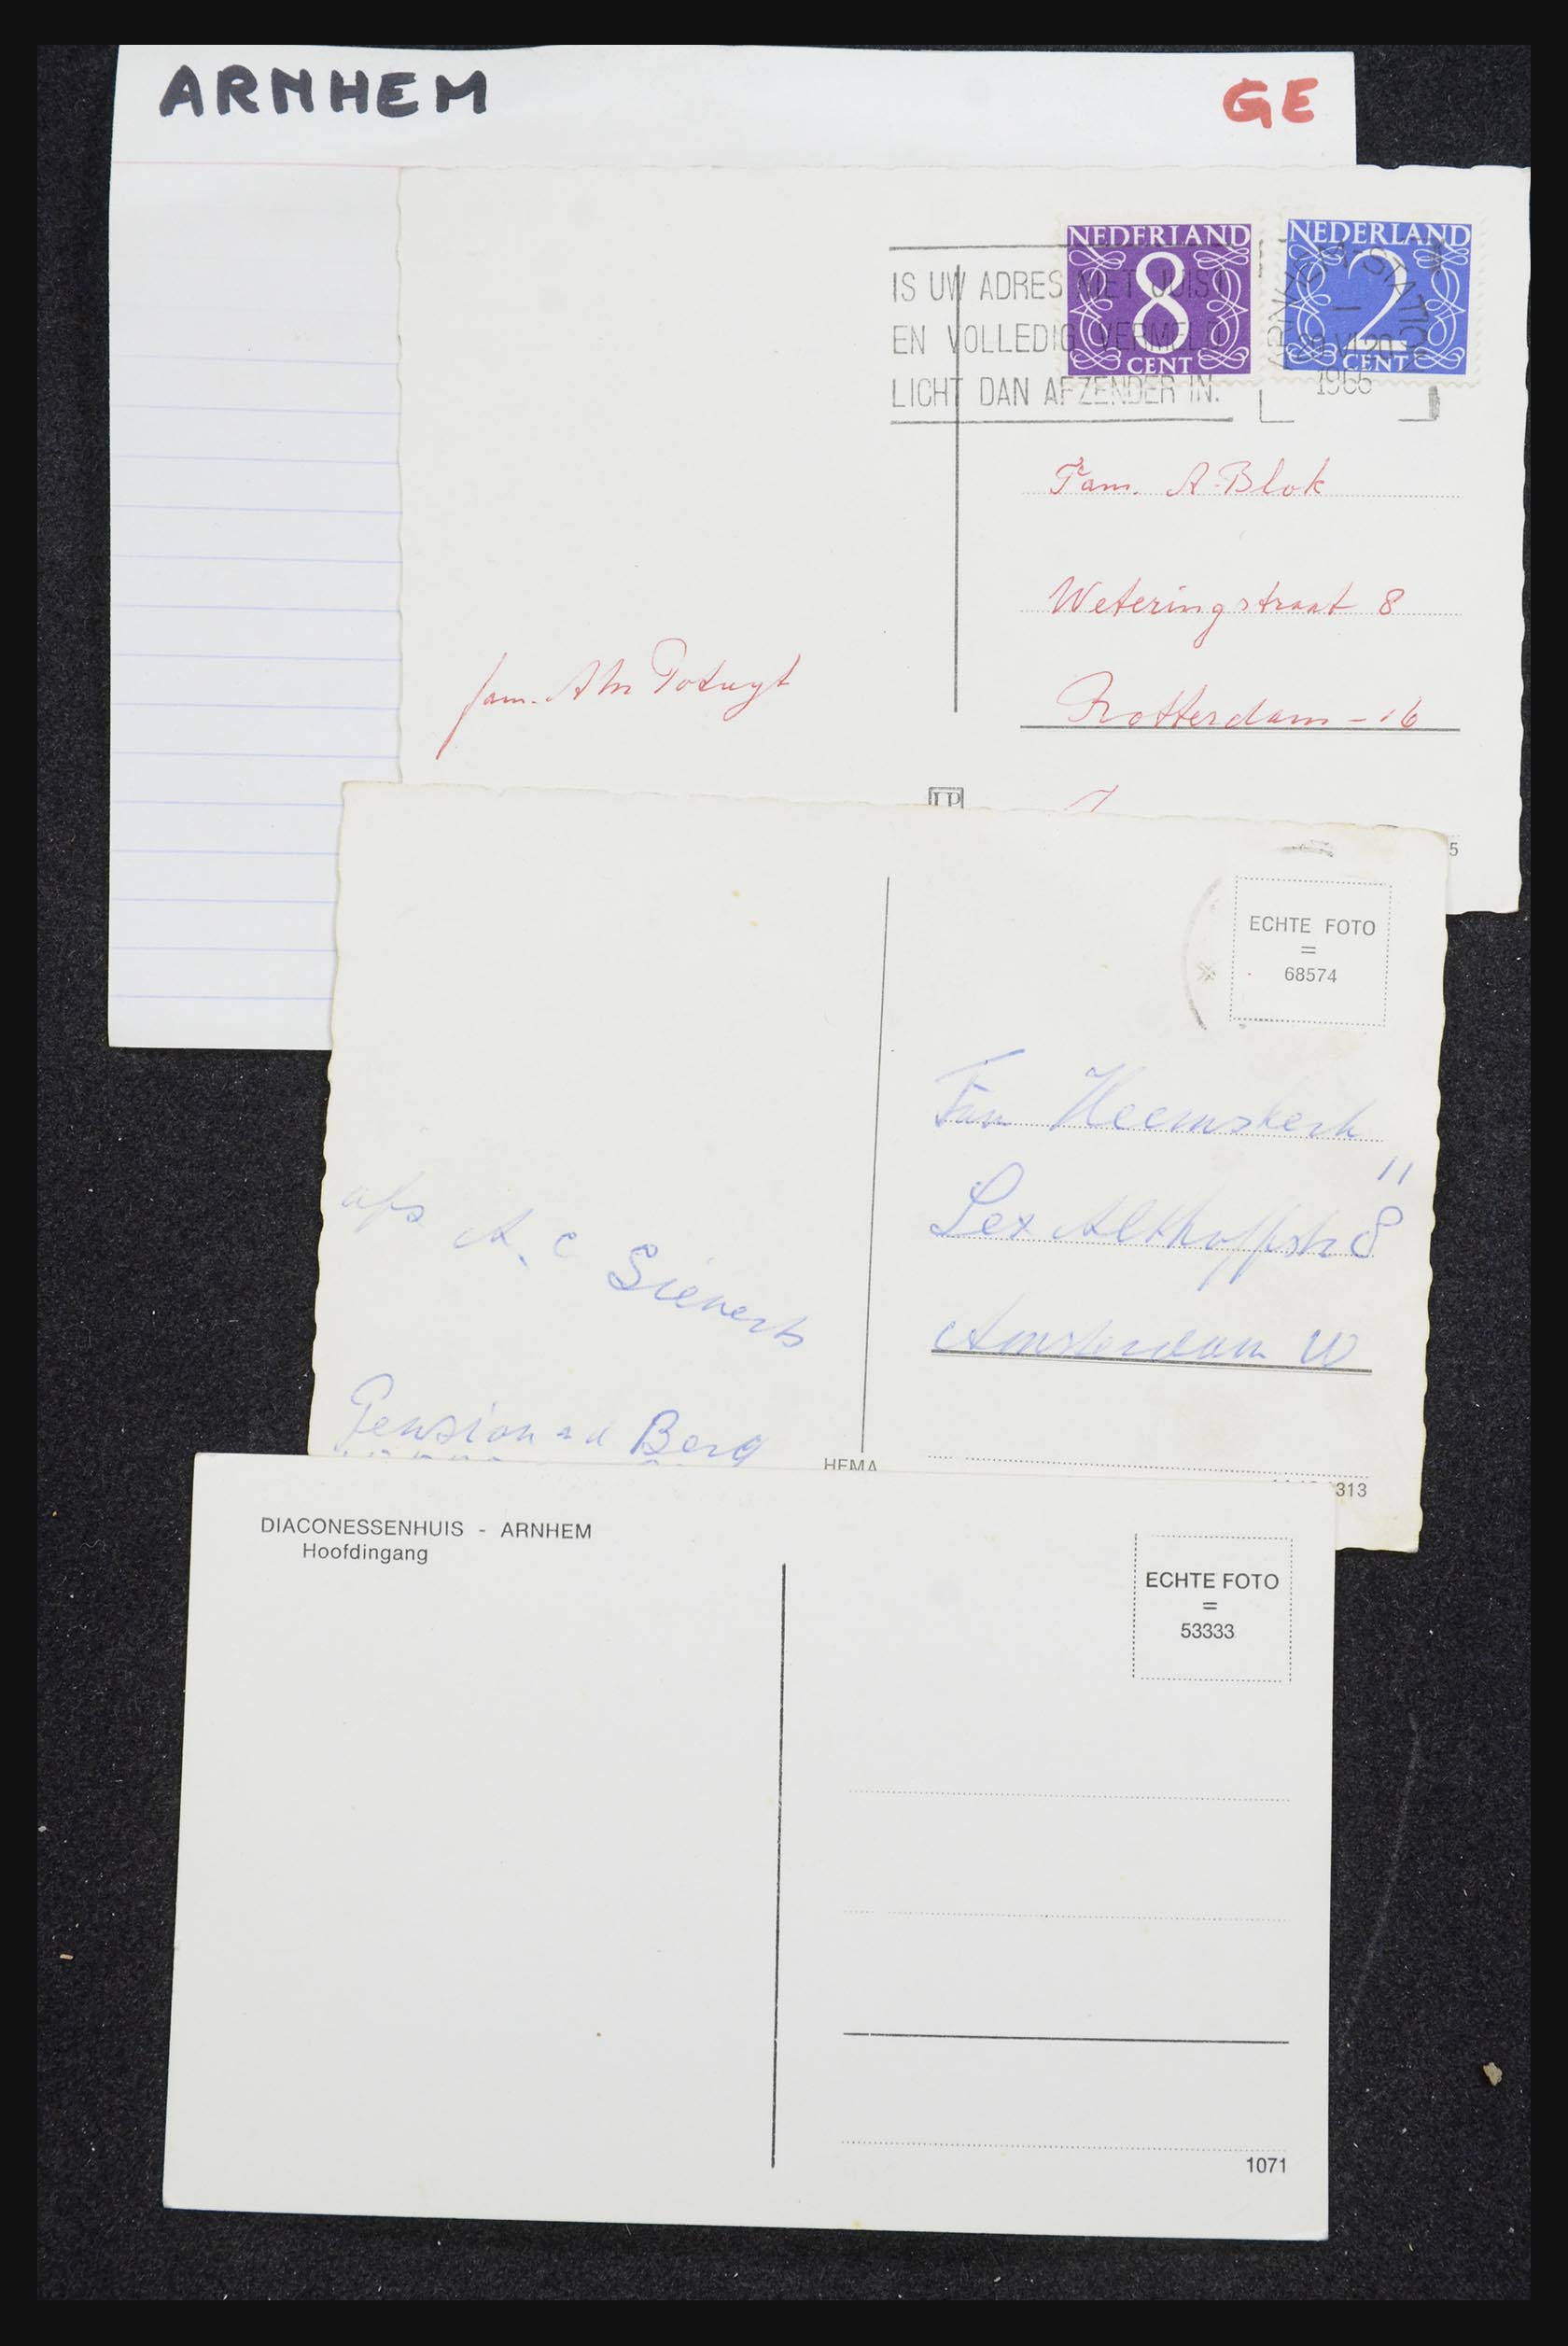 ARNHEM
GE
NEDERLAND
8
CENT
NEDERLAND
2
CENT
IS UW ADRES NIET JUIST
EN VOLLEDIG VERMELD
LICHT DAN AFZENDER IN.
ARNHEM STATION
1965
Fam. A. Blok
Weteringstraat 8
Rotterdam-16
fam.
5
ECHTE FOTO
=
68574
Fam Heemskerk
Lex Althoffstr 8 II
Amsterdam W
afs A. C Sieverts
Pension vd Berg
HEMA
313
DIACONESSENHUIS - ARNHEM
Hoofdingang
ECHTE FOTO
=
53333
1071